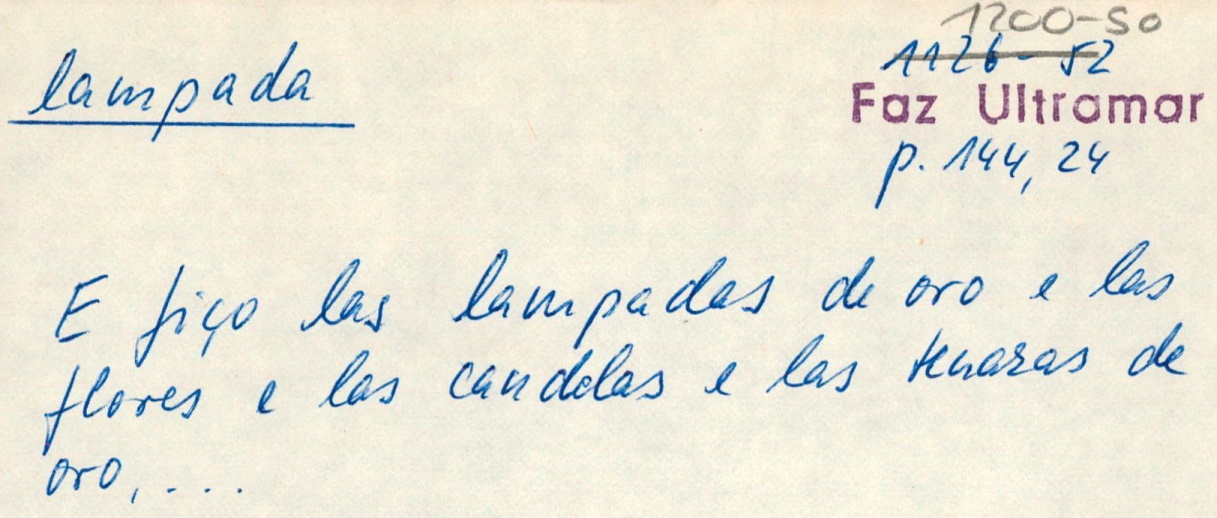 1200-50
lampada
1126-52
Faz Ultramar
p. 144, 24
E fiço las lampadas de oro e las
flores e las candelas e las tenazas de
oro, ...